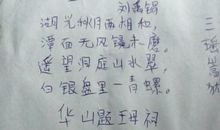 刘禹锡
湖光秋月两相和,
潭面无风镜未磨。
遥望洞庭山水翠
白银盘里一青螺。
华山题王母祠
三
瑶